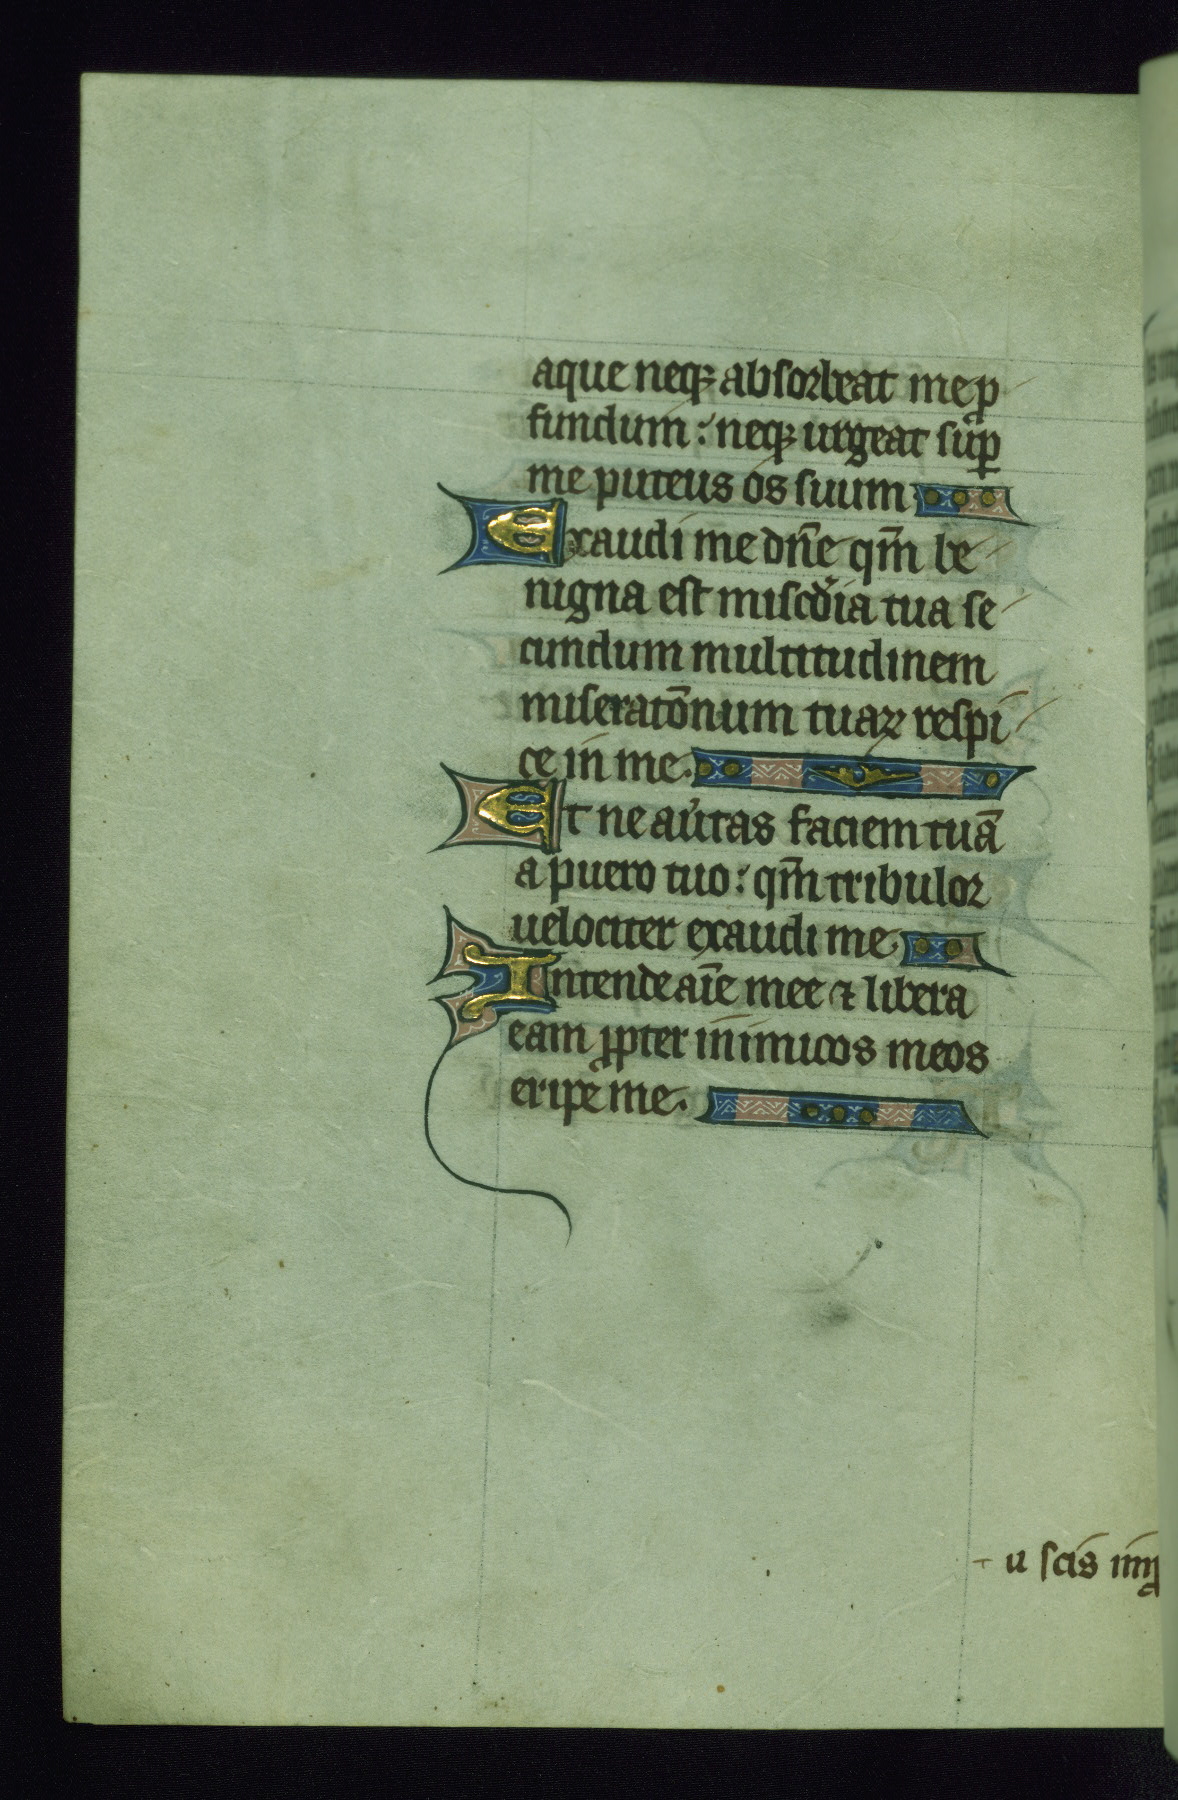 aque neqꝫ absorbeat me ꝓ
fundum : neqꝫ urgeat suꝑ
me puteus os suum
Exaudi me dn̄e qm̄ be
nigna est misc̄dia tua se
cundum multitudinem
miserato̅num tuaꝝ respi
ce in me.
Et ne au̓tas faciem tuā
a puero tuo : qm̄ tribulor
uelociter exaudi me
Intende aīe mee ⁊ libera
eam ꝓpter inimicos meos
eripe me.
Tu scis imꝓ